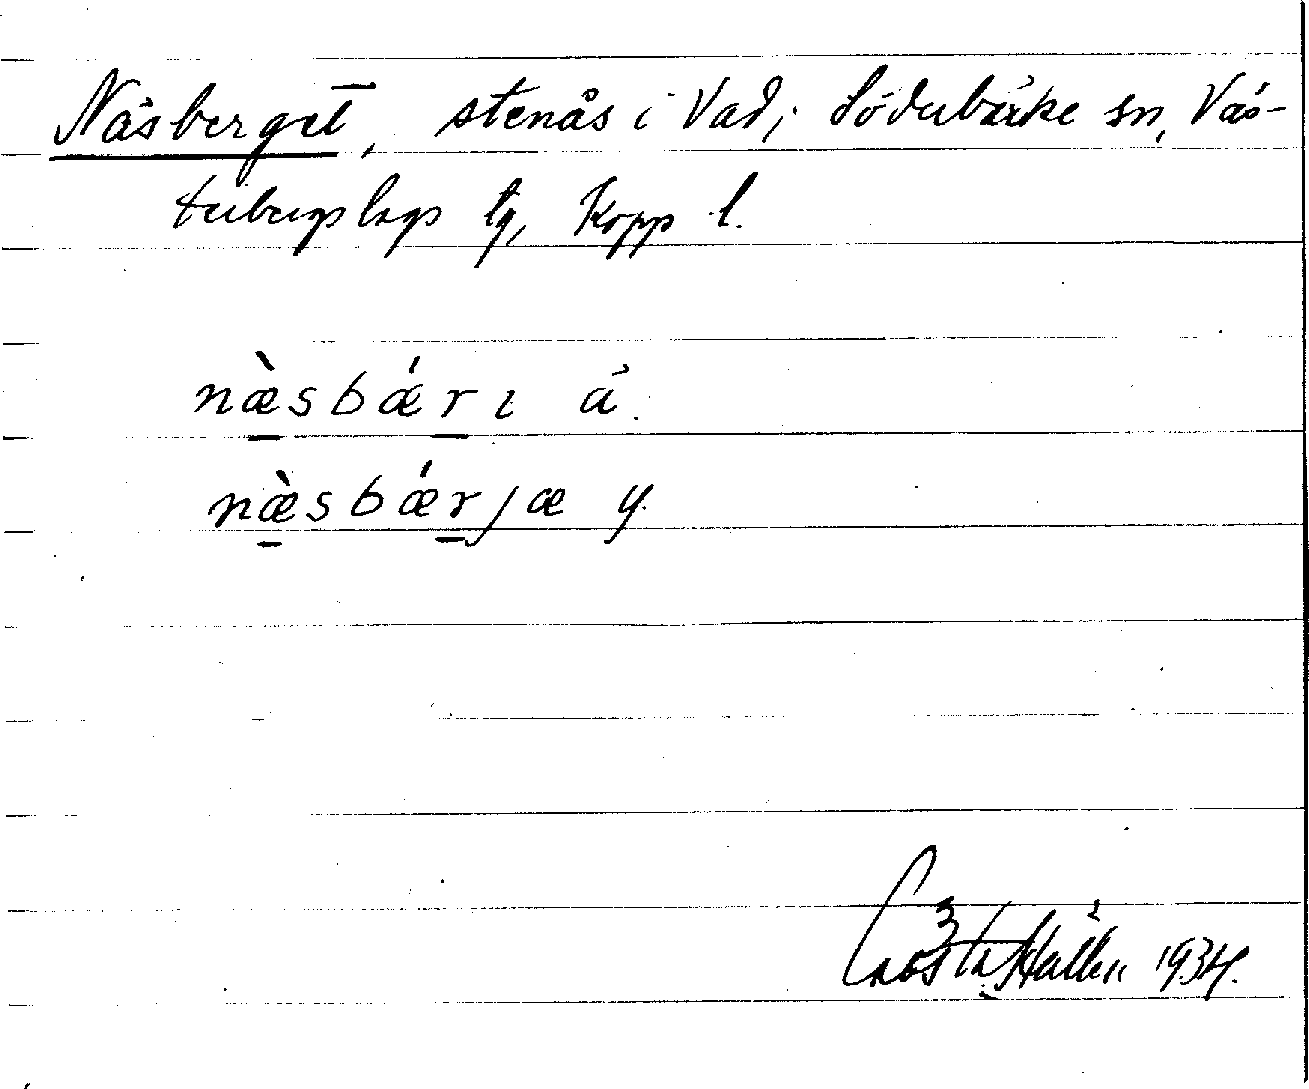 Näsberget, stenås i Vad, Söderbärke sn, Väs-
terbergslags tg, Kopp l.
næ̀sbǽrɩ ä.
næ̀sbǽrjæ y.
Gösta Hallén 1934.